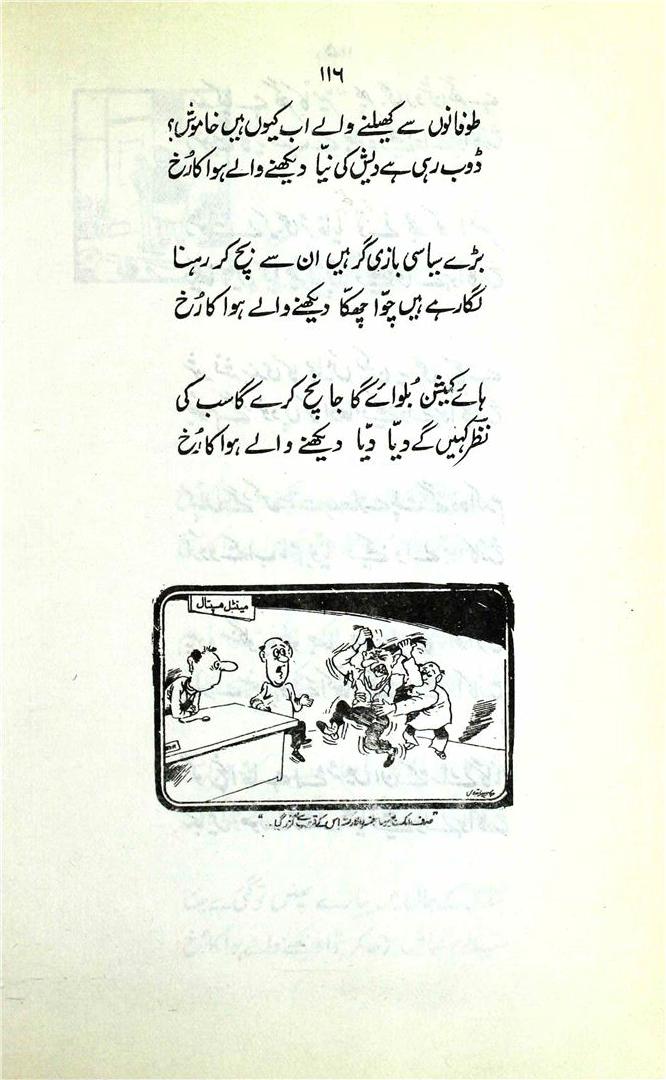 ۱۱۶
طوفانوں سے کھیلنے والے اب کیوں ہیں خاموش؟
ڈوب رہی ہے دیش کی نیّا دیکھنے والے ہوا کا رُخ
بڑے سیاسی بازی گر ہیں ان سے بچ کر رہنا
لگا رہے ہیں چوّا چھکّا دیکھنے والے ہوا کا رخ
ہائے کمیشن بُلوائے گا جانچ کرے گا سب کی
نظرؔ کہیں گے دیّا دیّا دیکھنے والے ہوا کا رخ
مینٹل ہسپتال
"صرف ایک
اس کے قریب سے گزر گیا۔"